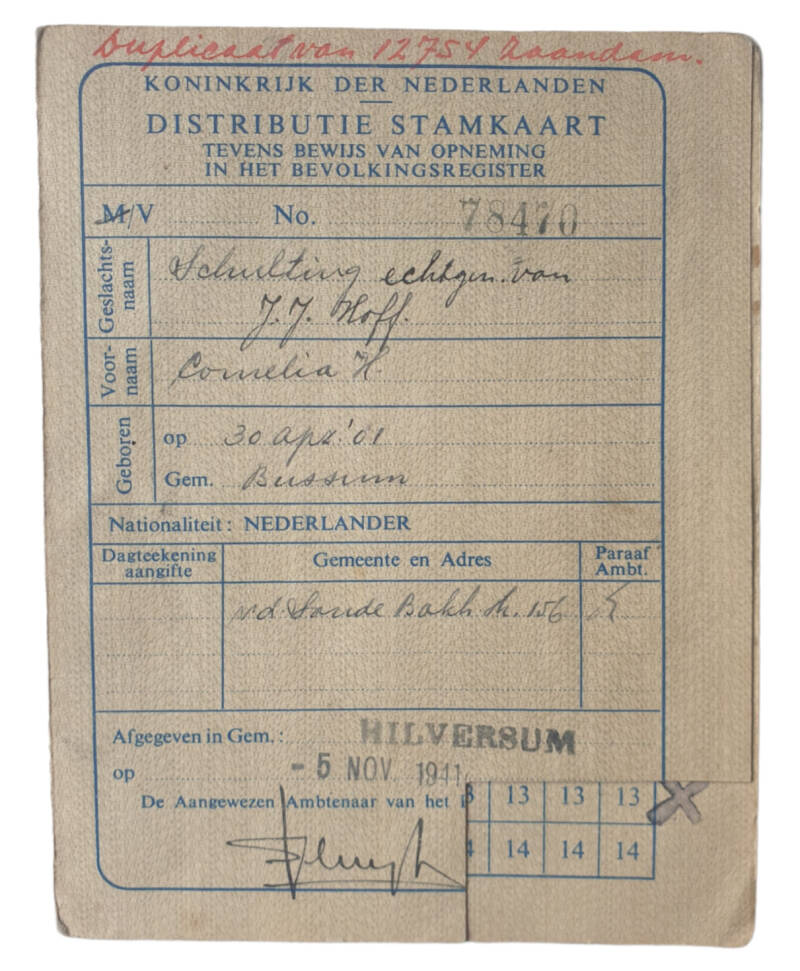 Duplicaat van 12754 Zaandam.
KONINKRIJK DER NEDERLANDEN
DISTRIBUTIE STAMKAART
TEVENS BEWIJS VAN OPNEMING
IN HET BEVOLKINGSREGISTER
M/V No. 78470
Geslachts-
naam
Schulting echtgen. van
J. J. Hoff.
Voor-
naam
Cornelia H.
Geboren
op 30 apr. '01
Gem. Bussum
Nationaliteit: NEDERLANDER
Dagteekening
aangifte
Gemeente en Adres
Paraaf
Ambt.
v.d. Sande Bakh. str. 156
Afgegeven in Gem.: HILVERSUM
op - 5 NOV. 1941
De Aangewezen Ambtenaar van het
13 13 13
14 14 14